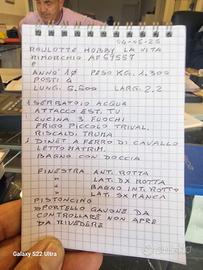 04-06-25
ROULOTTE HOBBY LA VITA
RIMORCHIO AF69557
E
ANNO 10 PESO KG. 1.300
POSTI 4
LUNG. 6.600 LARG. 2,2
1 SERBATOIO ACQUA
ATTACCO EST. TV
CUCINA 3 FUOCHI
FRIGO PICCOLO TRIVAL.
RISCALD. TRUMA
1 DINET A FERRO DI CAVALLO
LETTO MATRIM.
BAGNO CON DOCCIA
FINESTRA ANT. ROTTA
" LAT. DX ROTTA
" BAGNO INT. ROTTO
" LAT. SX MANCA
PISTONCINO
SPORTELLO GAVONE DA
CONTROLLARE NON APRE
DA RIVEDERE
Galaxy S22 Ultra
subito